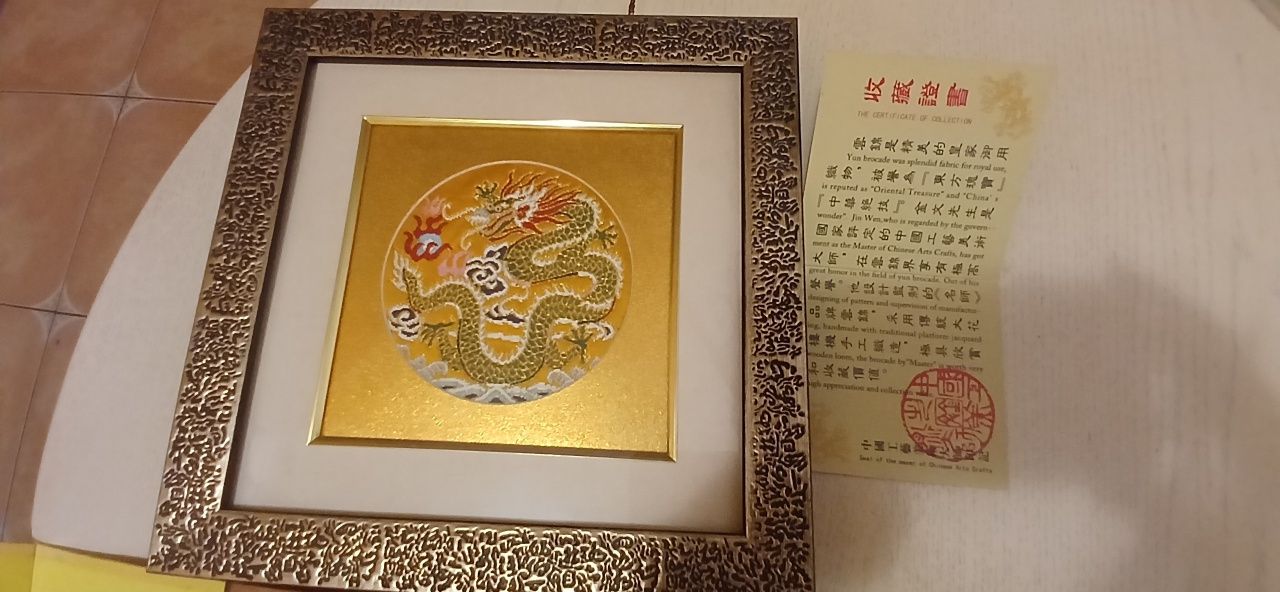 收藏證書
THE CERTIFICATE OF COLLECTION
雲錦是精美的皇家御用
Yun brocade was splendid fabric for royal use,
織物，被譽為『東方瑰寶』
is reputed as "Oriental Treasure" and "China's
『中華絕技』。金文先生是
wonder" Jin Wen,who is regarded by the govern-
國家評定的中國工藝美術
ment as the Master of Chinese Arts Crafts, has got
大師，在雲錦界享有極高
great honor in the field of yun brocade. Out of his
聲譽。他設計監制的《名師》
designing of pattern and supervision of manufactu-
品牌雲錦，采用傳統大花
ing, handmade with traditional platform jacquard
樓機手工織造，極具欣賞
wooden loom, the brocade by "Master" very
和收藏價值。
appreciation and
中國工藝 記
Seal of the master of Chinese Arts Crafts